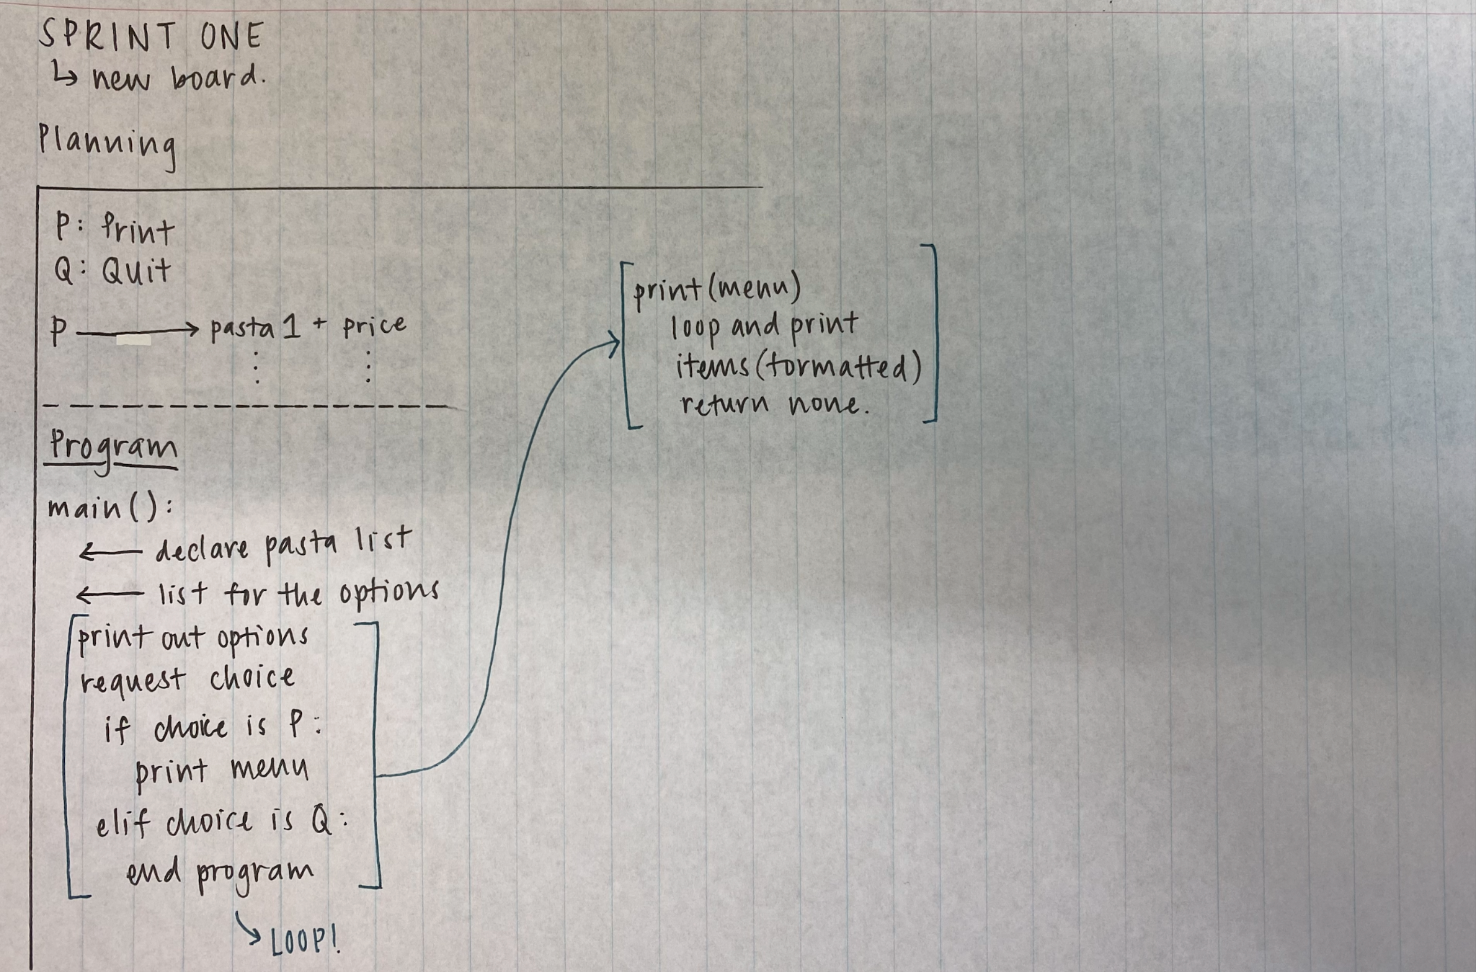 SPRINT ONE
↳ new board.
Planning
P: Print
Q: Quit
P → pasta 1 + price
Program
main():
← declare pasta list
← list for the options
print out options
request choice
if choice is P:
print menu
elif choice is Q:
end program
↘ LOOP!
print(menu)
loop and print
items(formatted)
return none.